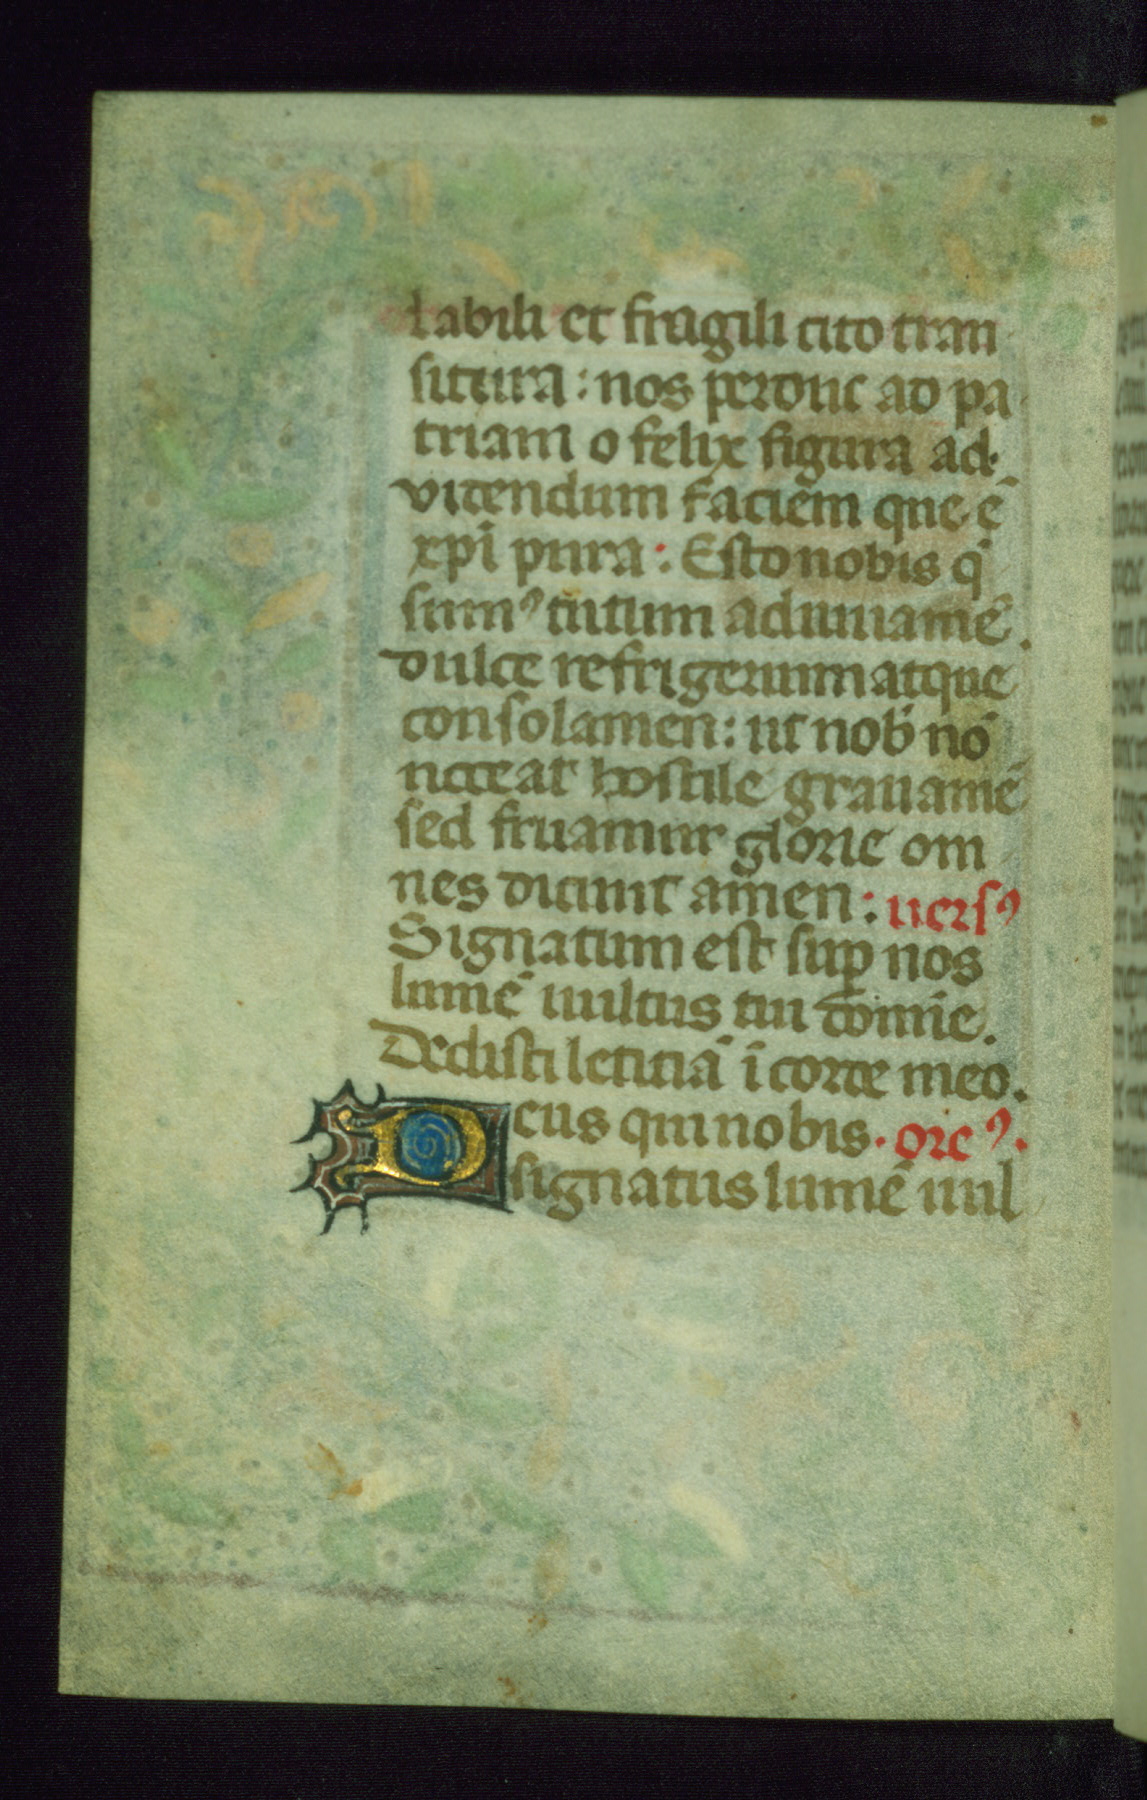 labili et fragili cito tran
situra : nos perduc ad pa
triam o felix figura ad
videndum faciem que ē
xp̄i pura : Esto nobis q̄
sumꝰ tutum adiuuamē.
dulce refrigerium atque
consolamen : ut nob̄ nō
noceat hostile grauamē
sed fruamur glorie om
nes dicunt amen : uersꝰ
Signatum est suꝑ nos
lumē uultus tui domīe.
Dedisti letitiā ī corde meo.
Deus qui nobis . orēꝰ.
signatus lumē uul